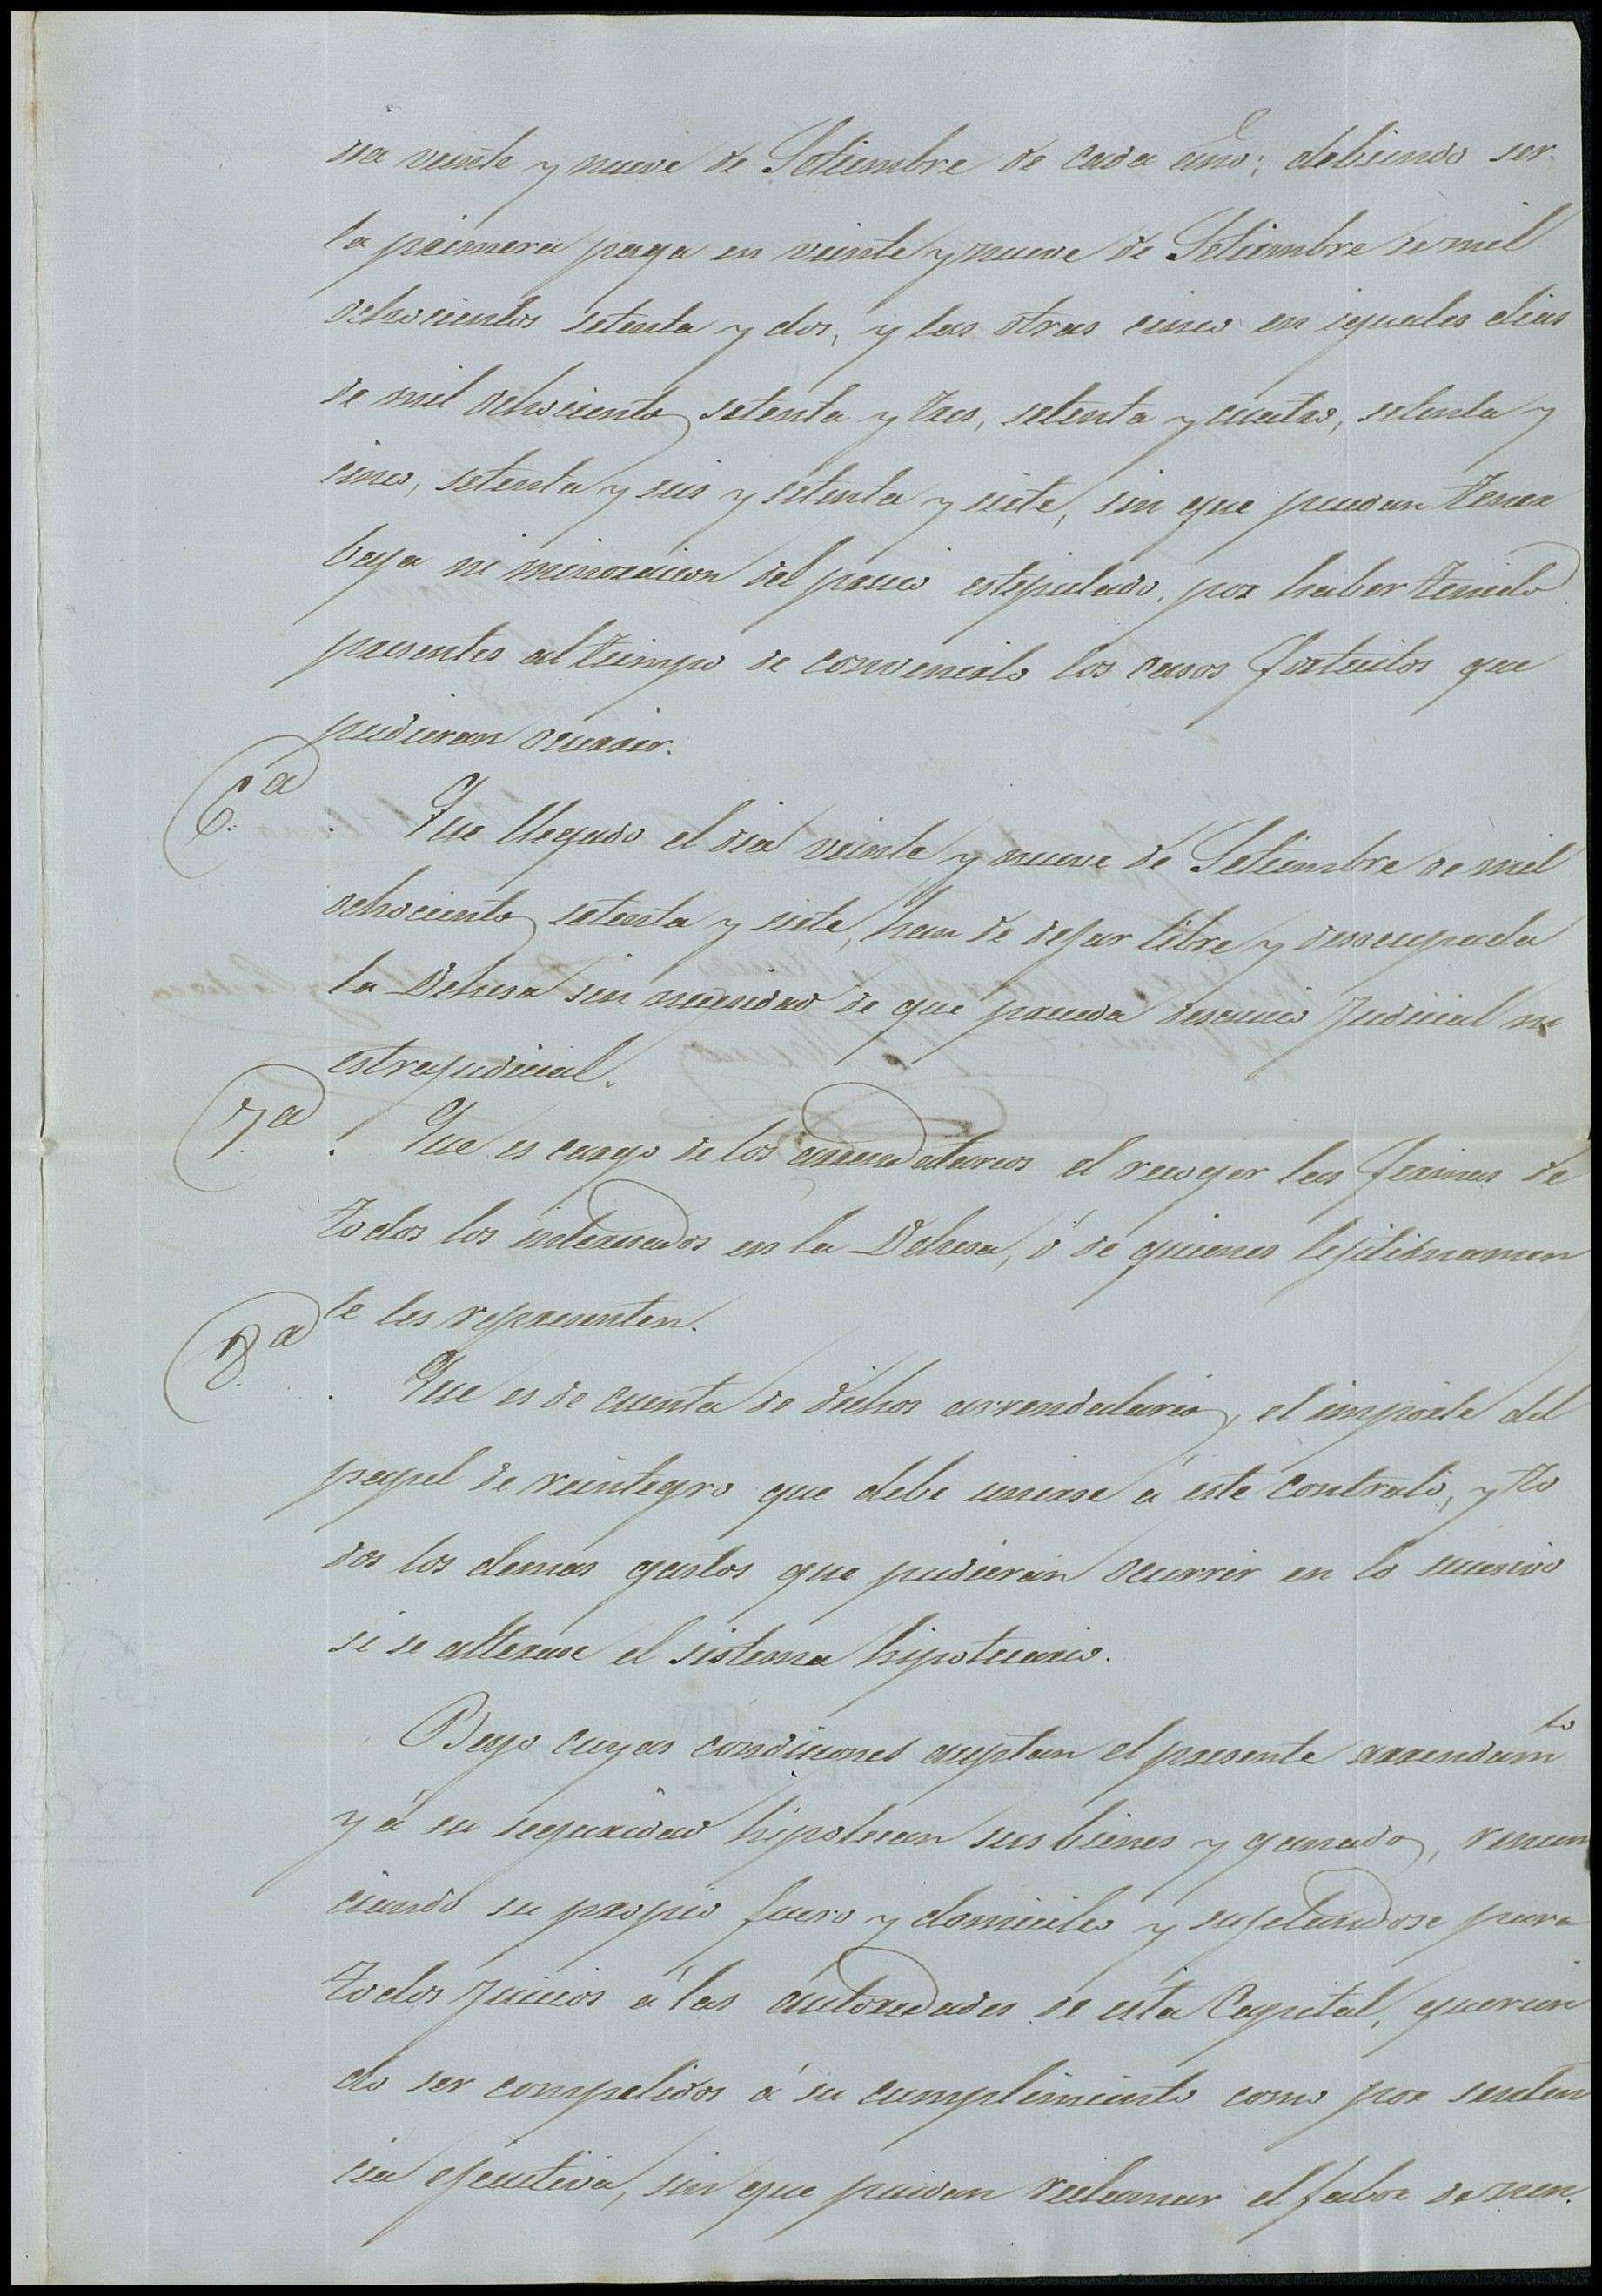 dia veinte y nueve de Setiembre de cada año; debiendo ser
la primera paga en veinte y nueve de Setiembre de mil
ochocientos setenta y dos, y las otras cinco en iguales dias
de mil ochocientos setenta y tres, setenta y cuatro, setenta y
cinco, setenta y seis y setenta y siete, sin que puedan tener
baja ni minoracion del precio estipulado, por haber tenido
presentes al tiempo de convenirlo los casos fortuitos que
pudieran ocurrir.
6.ª Que llegado el dia veinte y nueve de Setiembre de mil
ochocientos setenta y siete, han de dejar libre y desocupada
la Dehesa sin necesidad de que preceda desaucio judicial ni
estrajudicial.
7.ª Que es cargo de los arrendatarios el recoger las firmas de
todos los interesados en la Dehesa, ó de quienes lejitimamen
te les representen.
8.ª Que es de cuenta de dichos arrendatarios, el importe del
papel de reintegro que debe unirse á este contrato, y to
dos los demas gastos que pudieran ocurrir en lo sucesivo
si se alterase el sistema hipotecario.
Bajo cuyas condiciones aceptan el presente arrendam.to
y á su seguridad hipotecan sus bienes y ganados, renun
ciando su propio fuero y domicilio y sujetandose para
todos juicios á las autoridades de esta Capital, querien
do ser compelidos á su cumplimiento como por senten
cia ejecutiva, sin que puedan reclamar el fabor de nin.